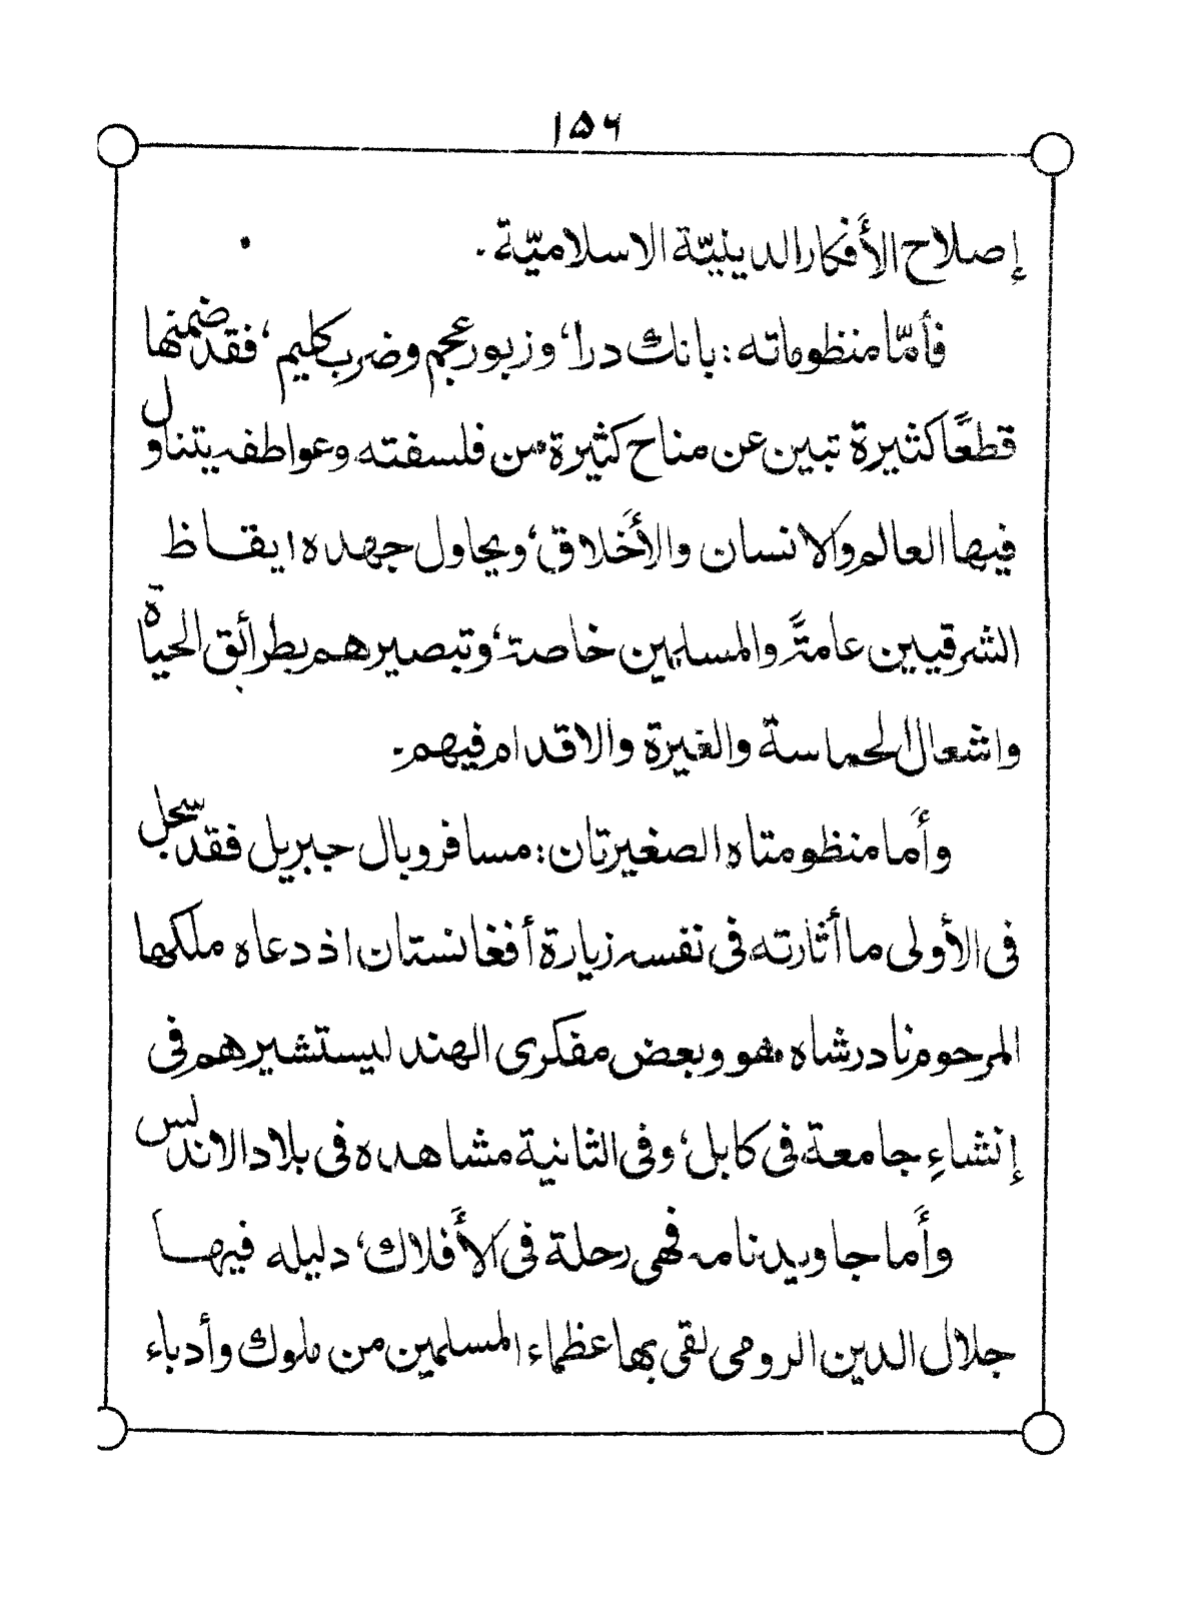 ١٥٦
إصلاح الأفكار الدينيّة الاسلاميّة.
فأمّا منظوماته: بانك درا، وزبور عجم وضرب كليم، فقد ضمنها
قطعًا كثيرة تبين عن مناح كثيرة من فلسفته وعواطفه يتناول
فيها العالم والانسان والأَخلاق، ويحاول جهده ايقاظ
الشرقيين عامةً والمسلمين خاصة، وتبصيرهم بطرائق الحياة
واشعال الحماسة والغيرة والاقدام فيهم.
وأَما منظومتاه الصغيرتان: مسافر وبال جبريل فقد سجل
فى الأولى ما أثارته فى نفسه زيارة أفغانستان اذ دعاه ملكها
المرحوم نادرشاه هو وبعض مفكرى الهند ليستشيرهم فى
إنشاءِ جامعة فى كابل، وفى الثانية مشاهده فى بلاد الاندلس
وأَما جاويدنامه فهى رحلة فى الأَفلاك، دليله فيها
جلال الدين الرومى لقى بها عظماء المسلمين من ملوك وأدباء